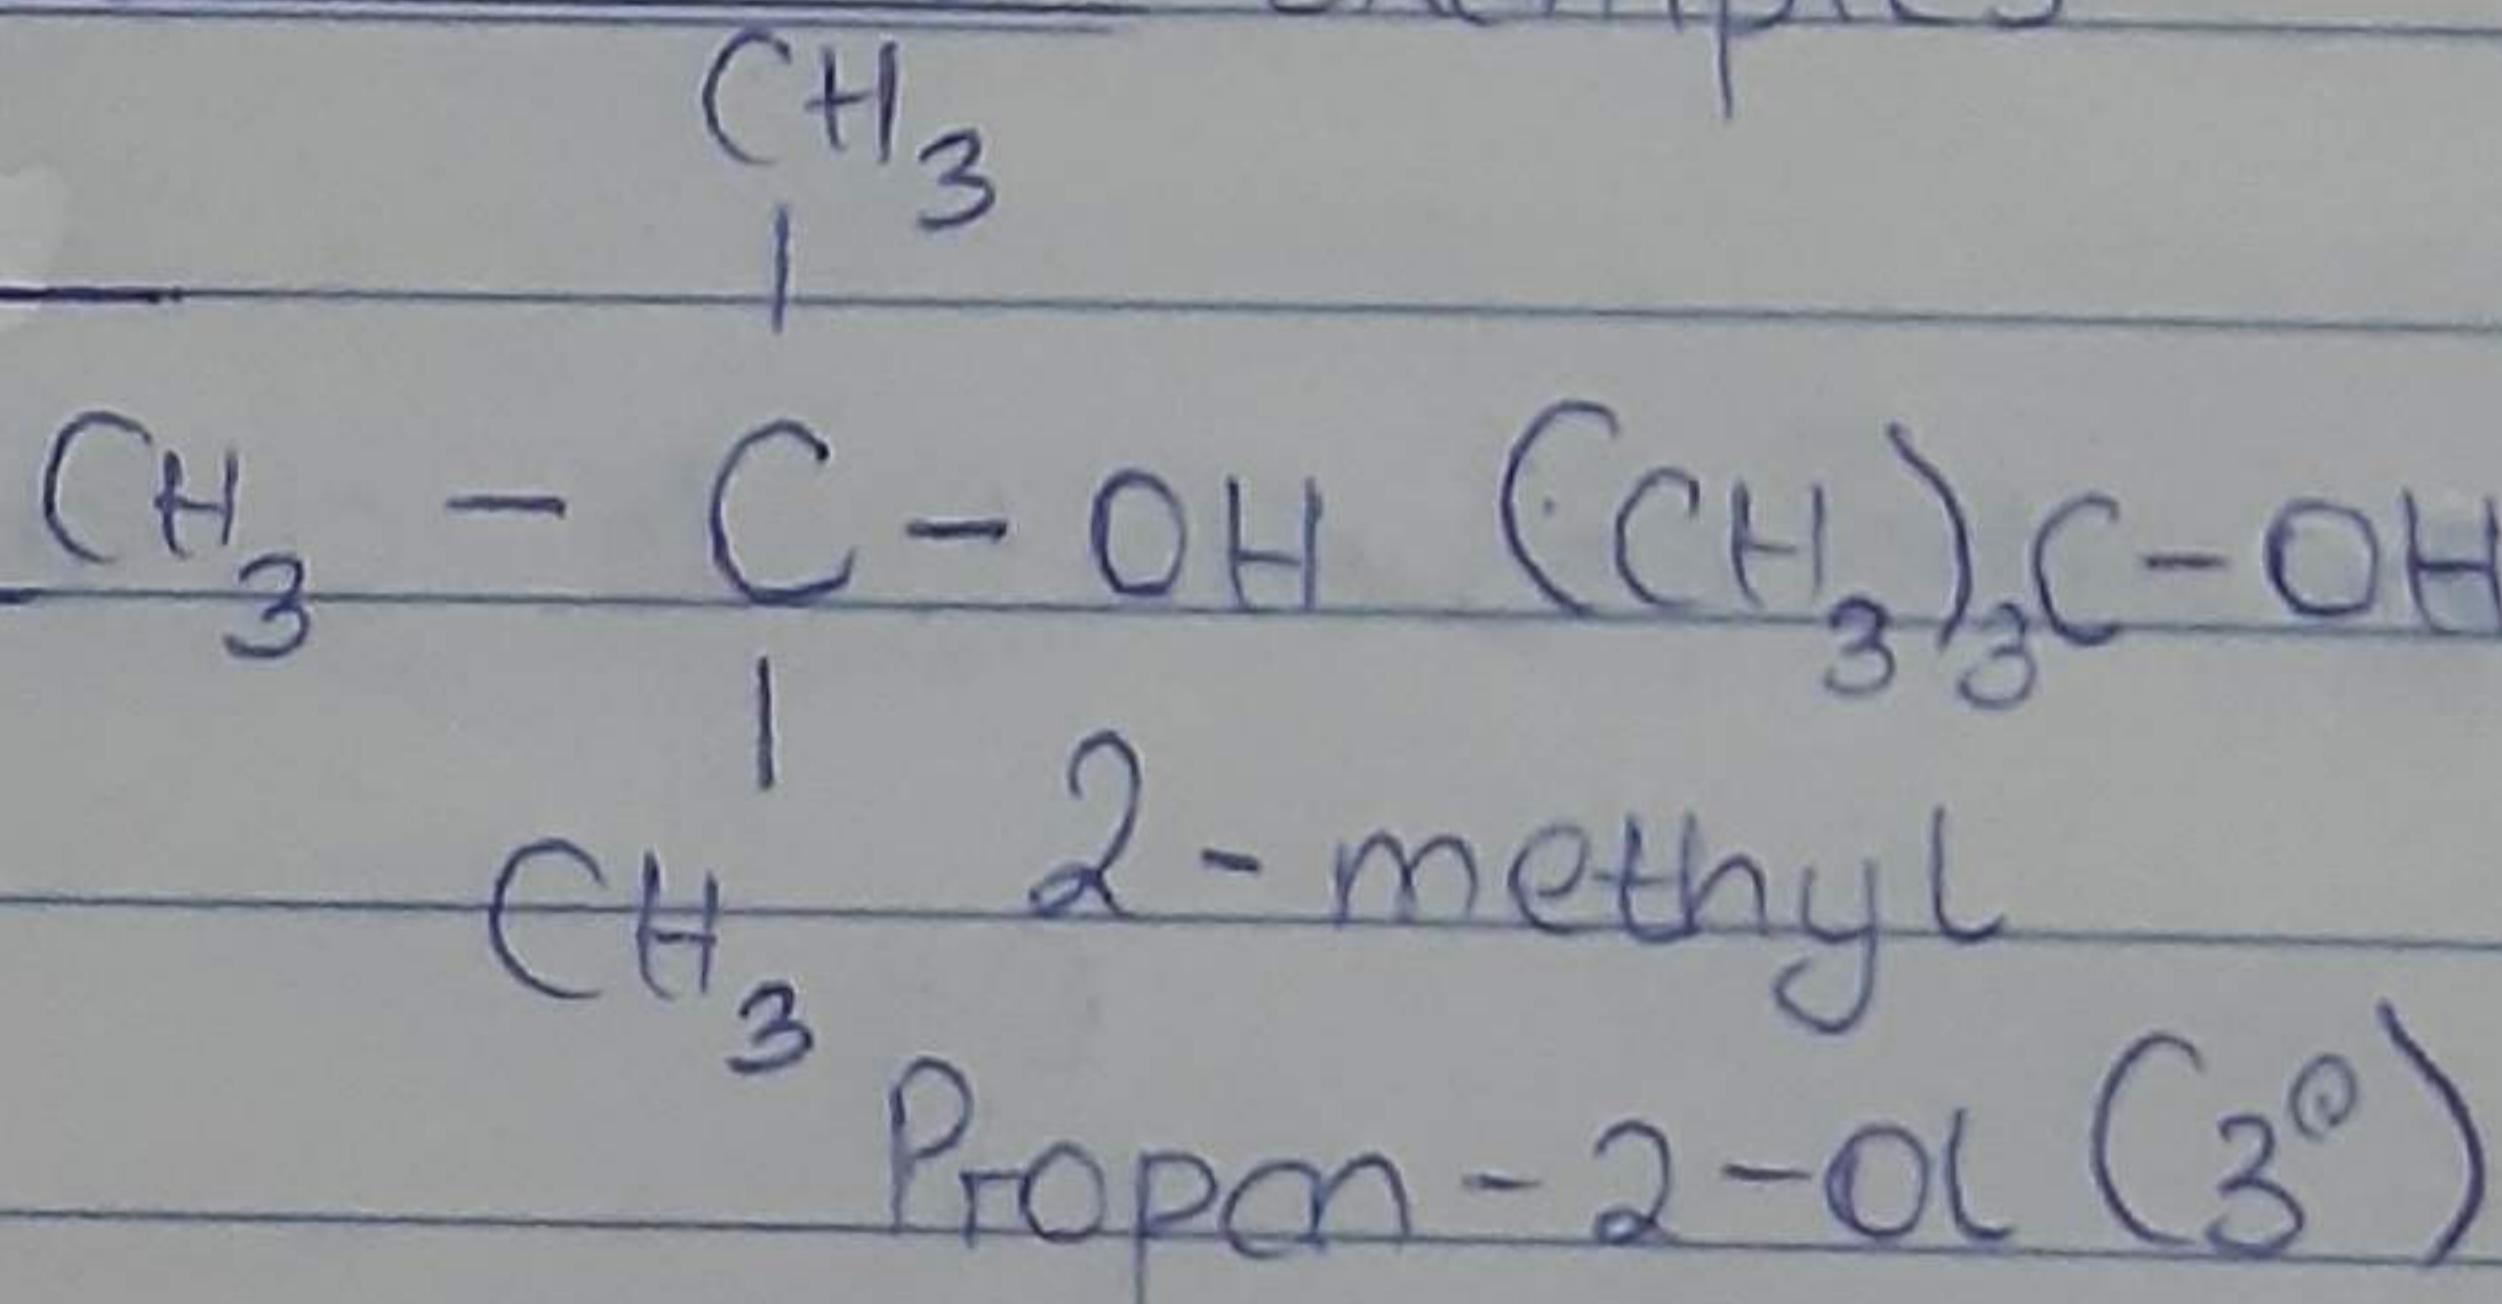 examples
CH3
|
CH3 - C - OH (CH3)3C-OH
|
CH3 2-methyl
Propan-2-Ol (3°)